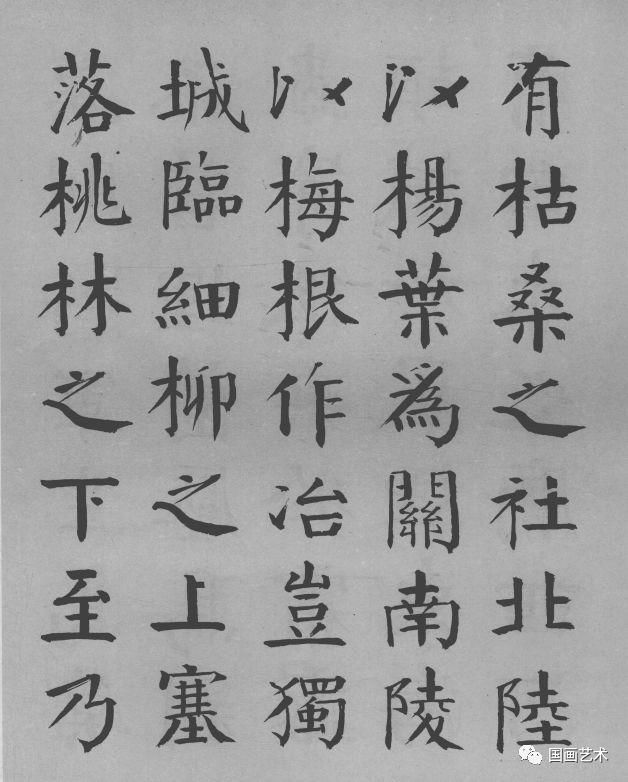 有枯桑之社北陸
以楊葉為關南陵
以梅根作冶豈獨
城臨細柳之上塞
落桃林之下至乃
国画艺术